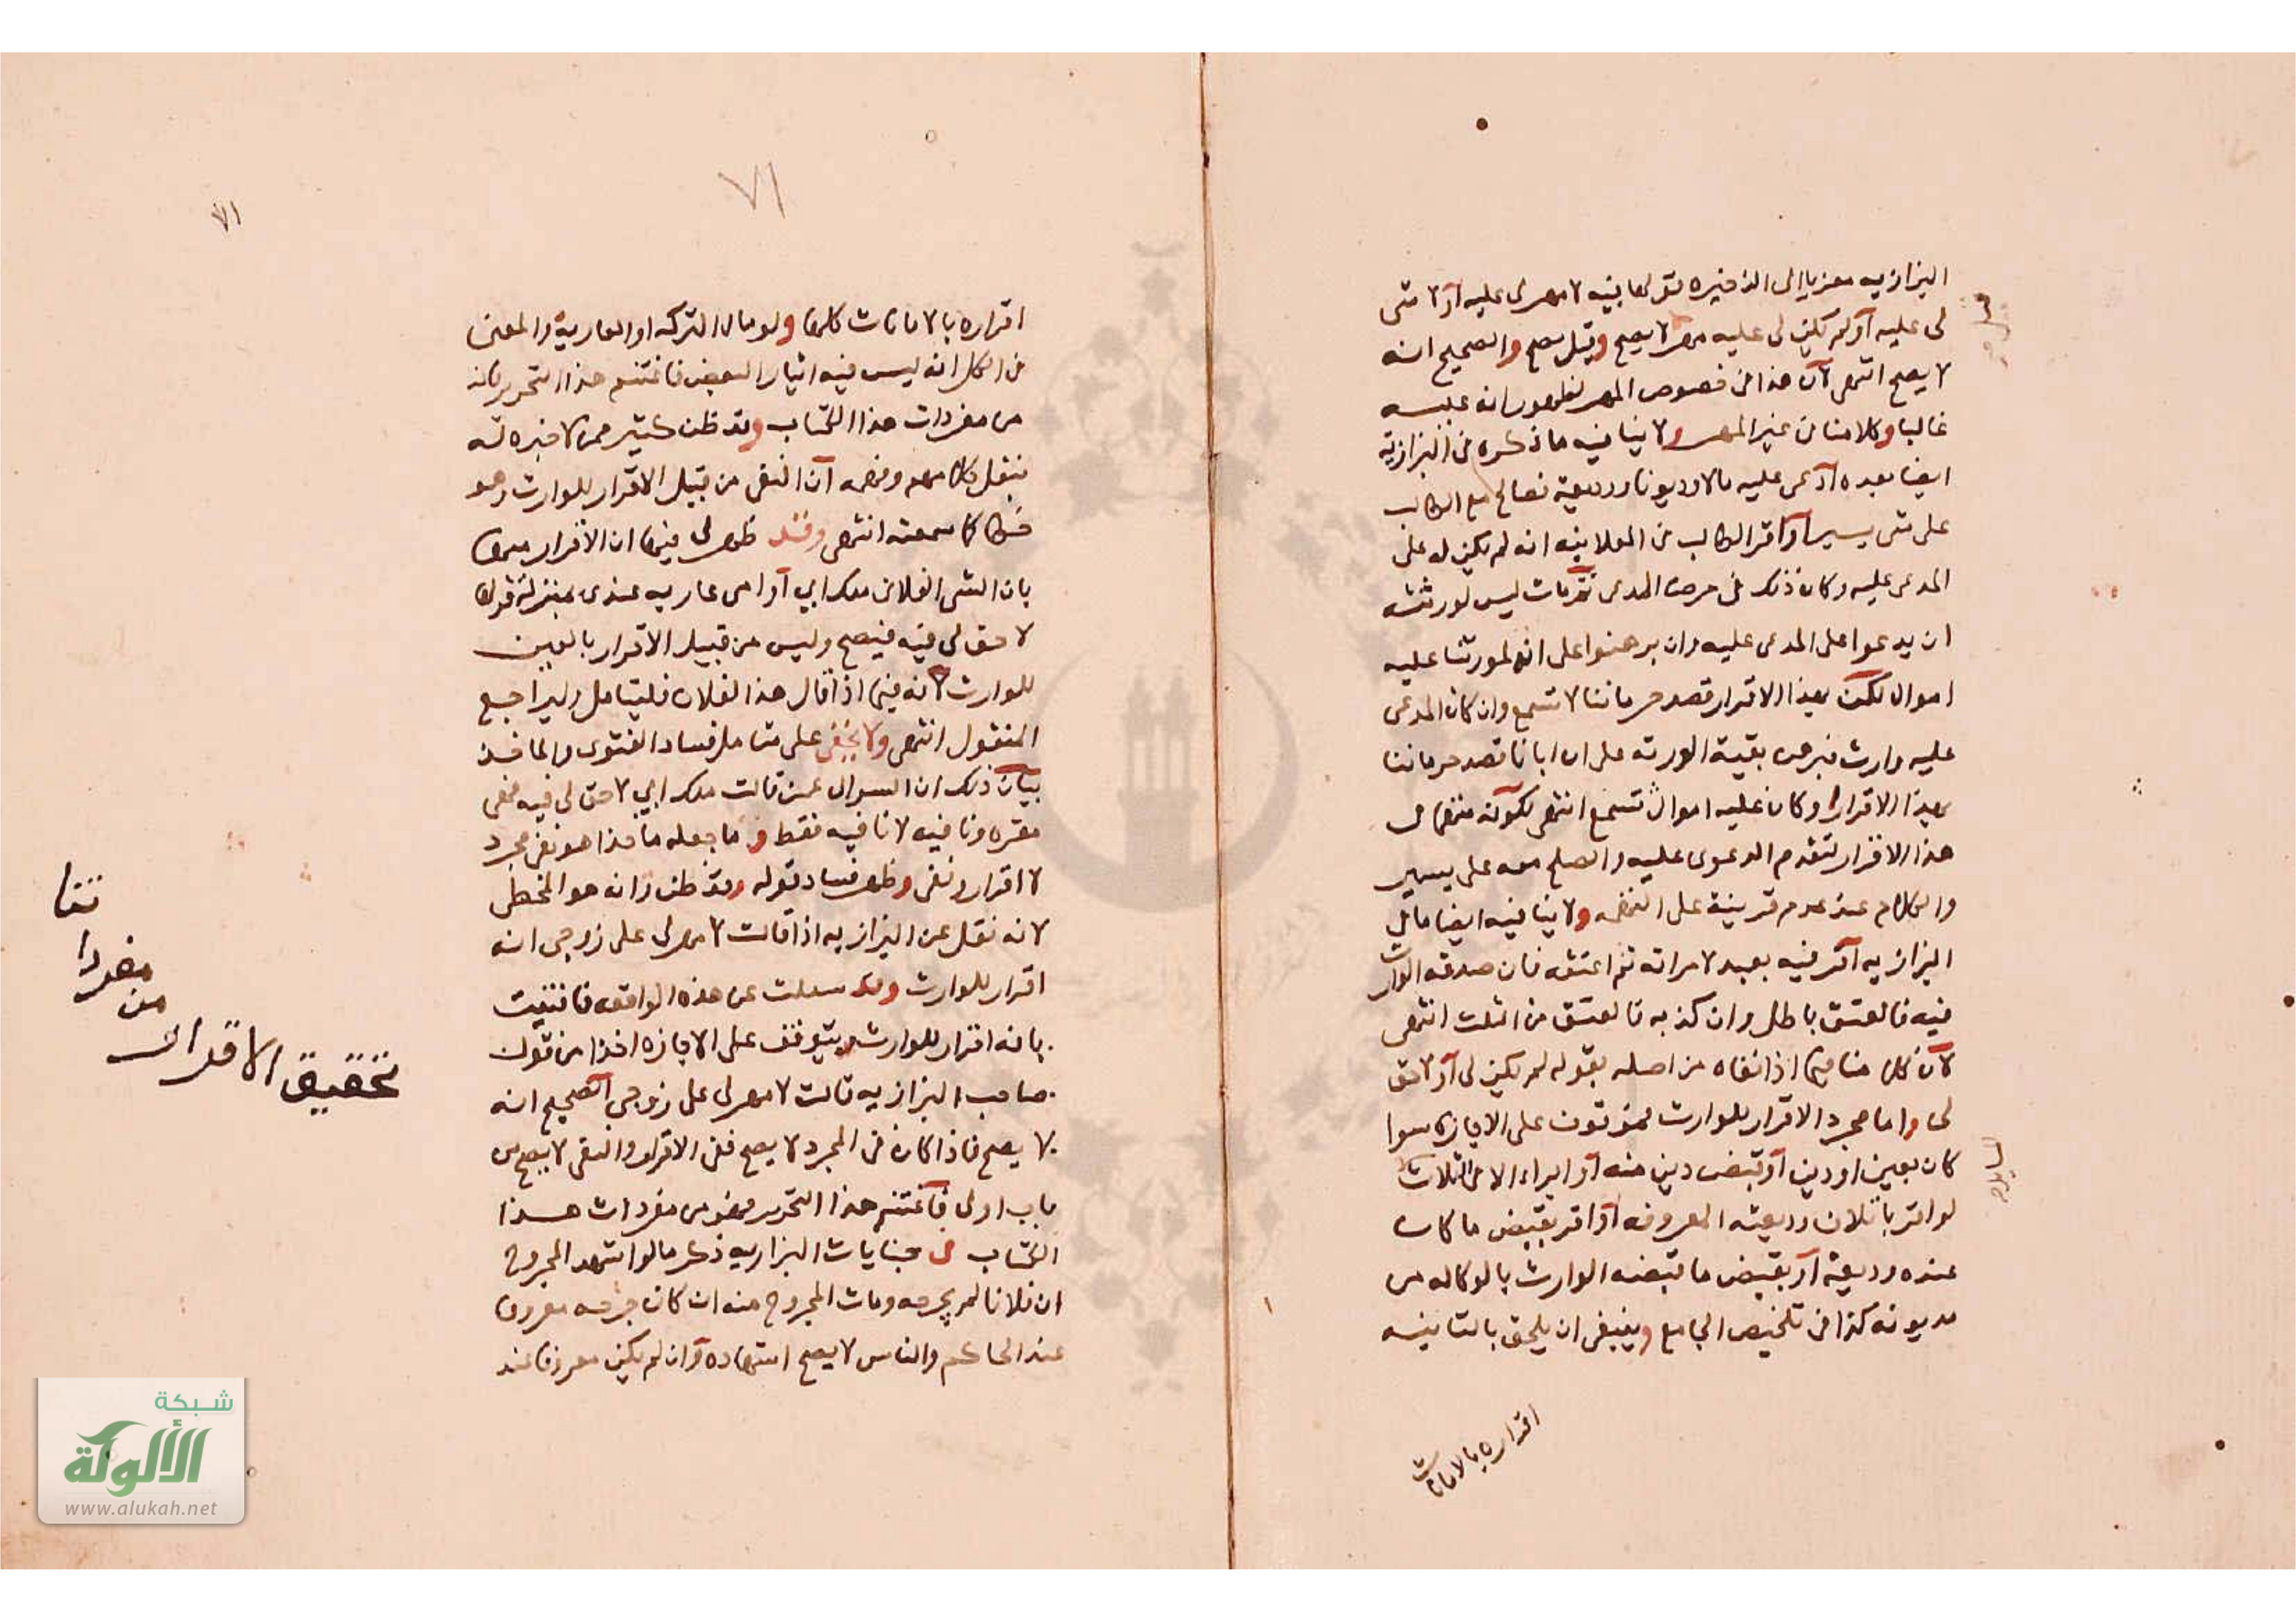 البزازيه معزيا الى الذخيره قولها فيه لا مهر لى عليه او لا شى
لى عليه او لم يكن لى عليه مهر لا يصح وقيل يصح والصحيح انه
لا يصح انتهى لان هذا فى خصوص المهر لظهور انه عليه
غالبا وكلامنا فى غير المهر ولا ينافيه ما ذكره فى البزازية
ايضا بعده ادعى عليه مالا وديونا ووديعة فصالح مع الطالب
على شى يسير او اقر الطالب فى العلانيه انه لم يكن له على
المدعى عليه وكان ذلك فى مرض المدعى ثم مات ليس لورثته
ان يدعوا على المدعى عليه وان برهنوا على انه لمورثنا عليه
اموال لكن بهذا الاقرار قصد حرماننا لا تسمع وان كان المدعى
عليه وارث فبرهن بقية الورثه على ان ابانا قصد حرماننا
بهذا الاقرار وكان عليه اموال تسمع انتهى لكونه متهما فى
هذا الاقرار لتقدم الدعوى عليه والصلح معه على يسير
والكلام عند عدم قرينة على التهمه ولا ينافيه ايضا ما فى
البزازيه اقر فيه بعبد لامراته ثم اعتقه فان صدقه الوارث
فيه فالعتق باطل وان كذبه فالعتق من الثلث انتهى
لان كلامنا فيما اذا نفاه من اصله بقوله لم يكن لى او لا حق
لى واما مجرد الاقرار للوارث فموقوف على الاجازة سوا
كان بعين او دين او قبض دين منه او ابراءه الا فى ثلاث
لو اقر باتلاف وديعته المعروفه او اقر بقبض ما كان
عنده وديعة او بقبض ما قبضه الوارث بالوكاله من
مديونه كذا فى تلخيص الجامع وينبغى ان يلحق بالثانيه
اقراره بالامانات
٧١
٧١
اقراره بالامانات كلها ولو مال الشركه او العارية والمعنى
فى الكل انه ليس فيه ايثار البعض فاغتنم هذا التحرير فانه
من مفردات هذا الكتاب وقد ظن كثير ممن لا خبره له
بنقل كلامهم وفهمه ان النفى من قبيل الاقرار للوارث وهو
خطا كما سمعته انتهى وقد ظهر لى فيها ان الاقرار منها
بان الشى الفلانى ملك ابي او امى عاريه عندى بمنزلة قولها
لا حق لى فيه فيصح وليس من قبيل الاقرار بالعين
للوارث لانه فيما اذا قال هذا لفلان فليتامل ويراجع
المنقول انتهى ولا يخفى على متامل فساد الفتوى والماخذ
بيان ذلك ان السوال عمن قالت ملك ابي لا حق لى فيه فهى
مقره ونافيه لا نافيه فقط وما جعله ماخذا هو نفى مجرد
لا اقرار ونفى وظهر فساد قوله وقد ظن وانه هو المخطى
لانه نقل عن البزازيه اذا قالت لا مهر لى على زوجى انه
اقرار للوارث وقد سيلت عن هذه الواقعه فافتيت
بانه اقرار للوارث ويتوقف على الاجازه اخذا من قول
صاحب البزازيه قالت لا مهر لى على زوجى الصحيح انه
لا يصح فاذا كان فى المجرد لا يصح ففى الاقرار والنفى لا يصح من
باب اولى فاغتنم هذا التحرير فهو من مفردات هذا
الكتاب فى جنايات البزازيه ذكر مالو اشهد المجروح
ان فلانا لم يجرحه ومات المجروح منه ان كان جرحه معروفا
عند الحاكم والناس لا يصح اشهاده وان لم يكن معروفا عند
تحقيق الاقرار
من
شبكة
الألوكة
www.alukah.net